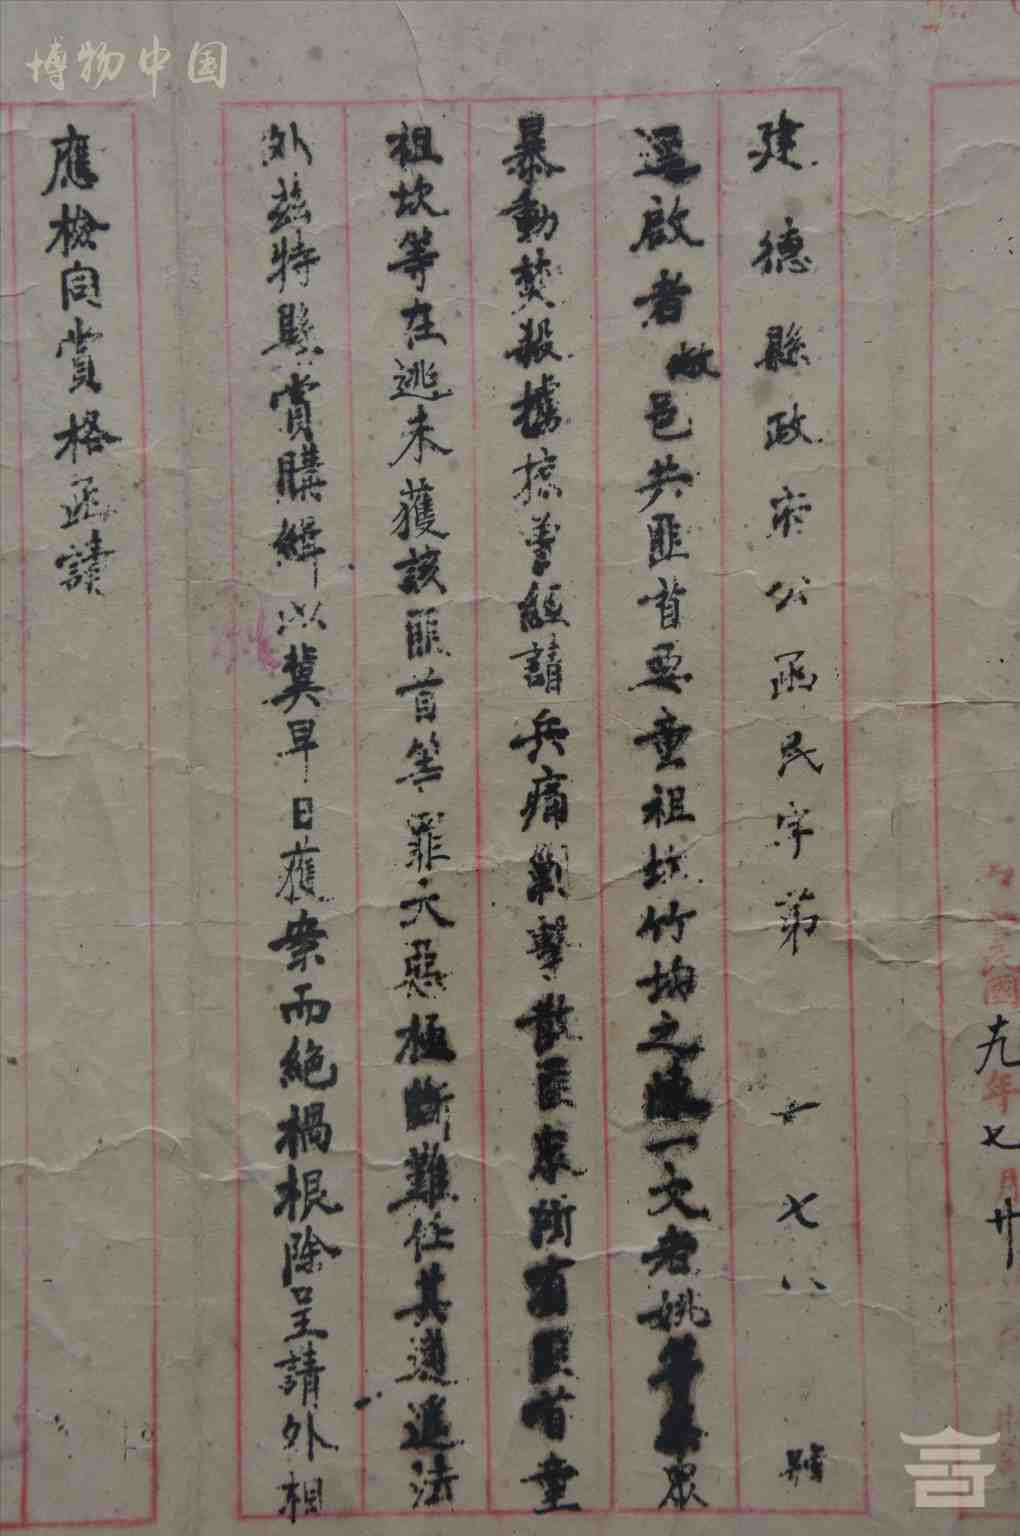 博物中国
國
九年七月廿
建德縣政府公函民字第 七八號
逕啟者敝邑共匪首要童祖坎竹均之 一文者姚 衆
暴動焚殺擄掠曾經請兵痛剿擊散匪衆所有匪首童
祖坎等在逃未獲該匪首等罪大惡極斷難任其逍遙法
外茲特懸賞購緝以冀早日獲案而絕禍根除呈請外相
應檢同賞格函請